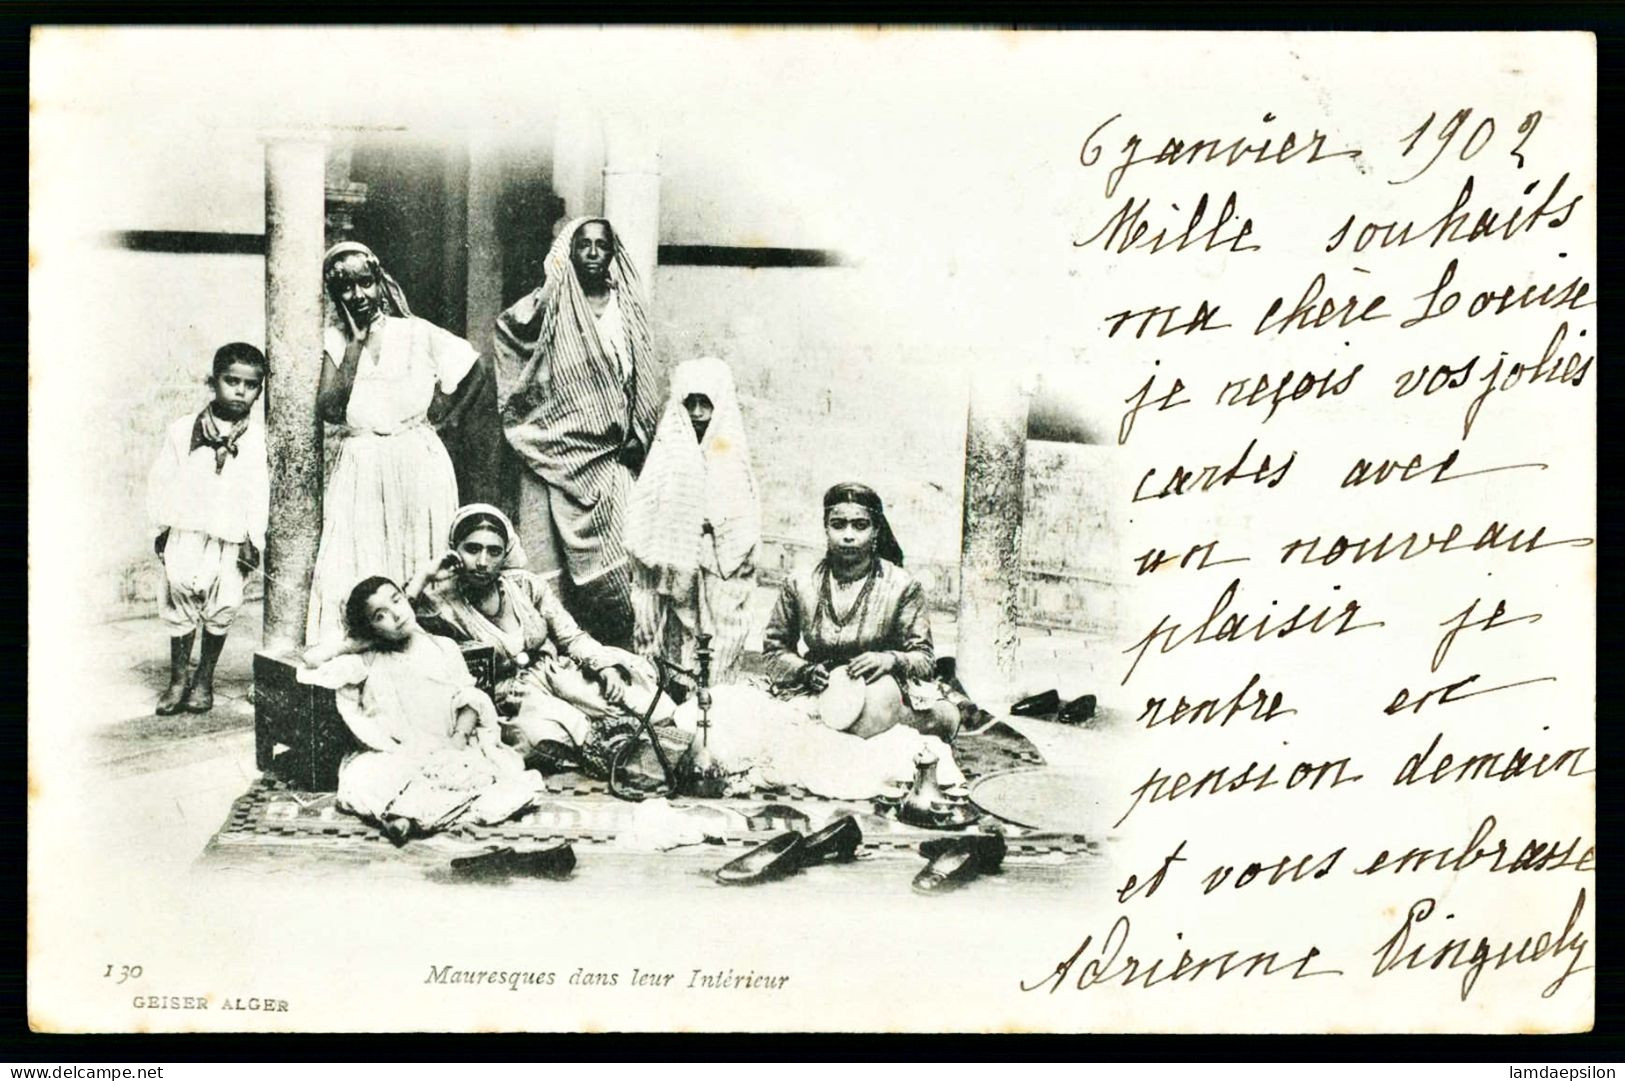 6 janvier 1902
Mille souhaits
ma chère Louise
je reçois vos jolies
cartes avec
un nouveau
plaisir je
rentre en
pension demain
et vous embrasse
Adrienne Pinguely
130
Mauresques dans leur Intérieur
GEISER ALGER
lamdaepsilon
delcampe.net